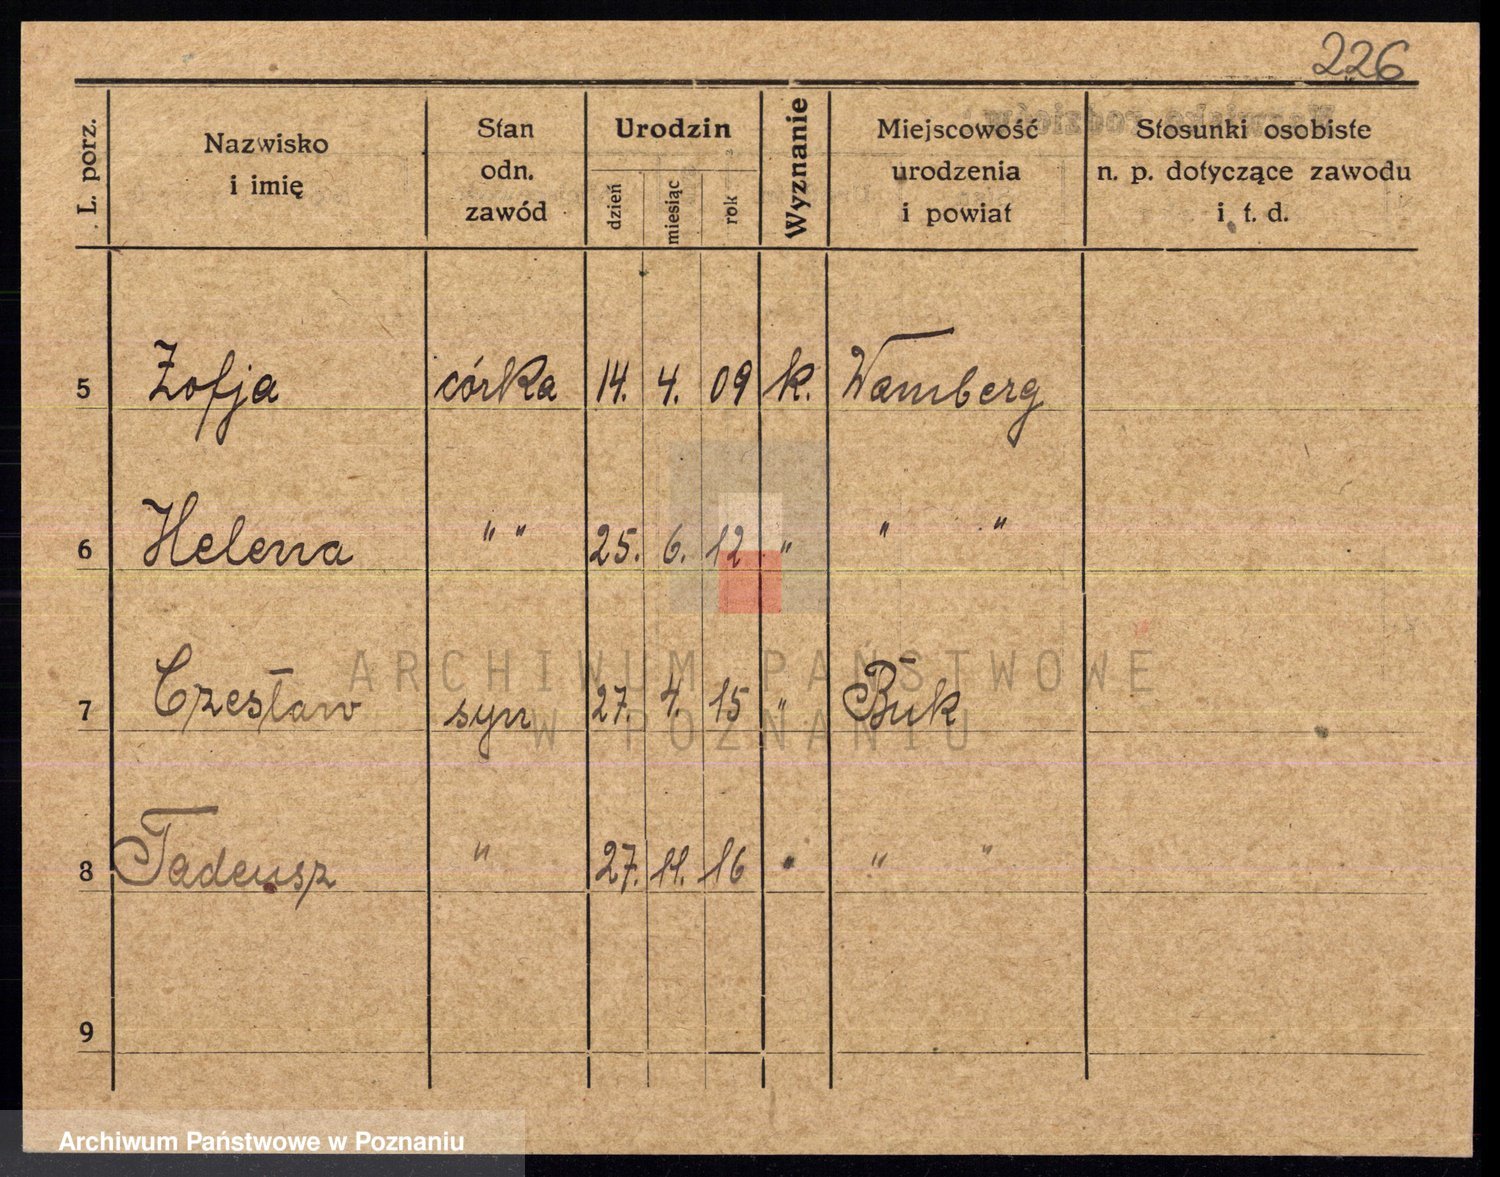 226
L. porz.
Nazwisko
i imię
Stan
odn.
zawód
Urodzin
dzień
miesiąc
rok
Wyznanie
Miejscowość
urodzenia
i powiat
Stosunki osobiste
n. p. dotyczące zawodu
i t. d.
5 Zofja córka 14. 4. 09 k. Wamberg
6 Helena " " 25. 6. 12 " " "
7 Czesław syn 27. 4. 15 " Buk
8 Tadeusz " 27. 11. 16 " " "
9
ARCHIWUM PAŃSTWOWE
W POZNANIU
Archiwum Państwowe w Poznaniu